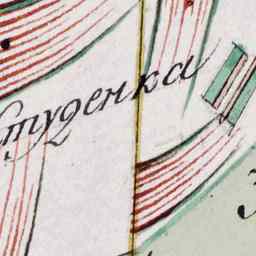 Студенка